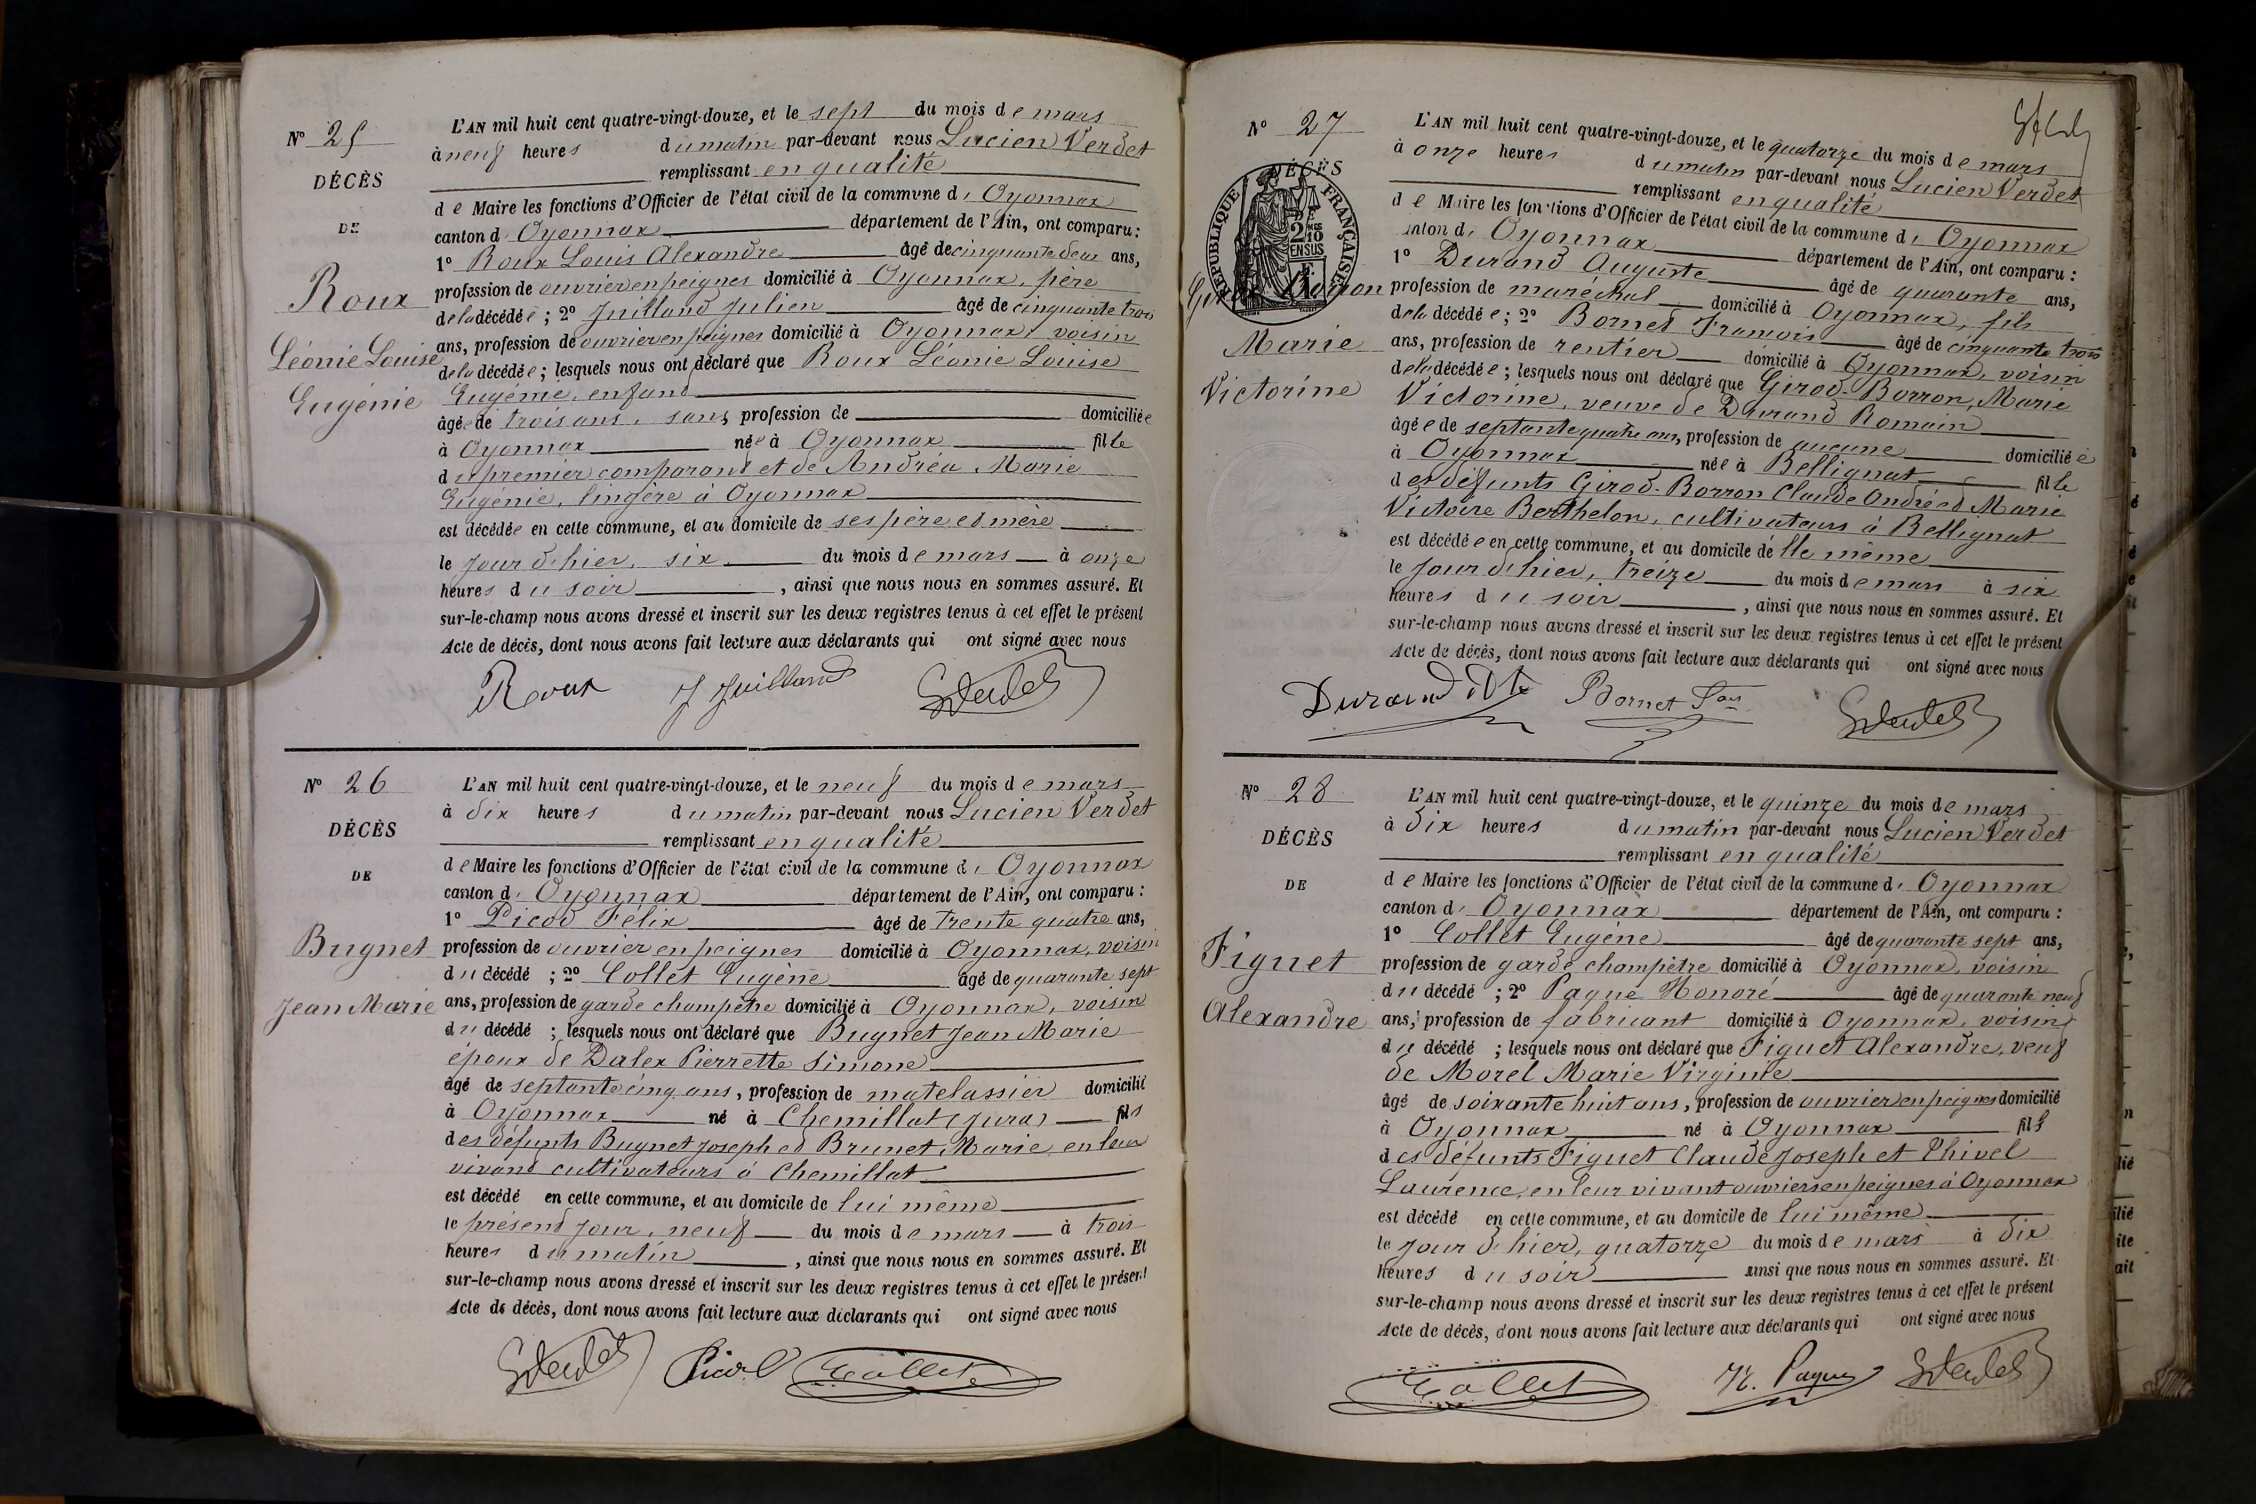 N° 25
DÉCÈS
DE
Roux
Léonie Louise
Eugénie
L'AN mil huit cent quatre-vingt-douze, et le sept du mois de mars
à neuf heures du matin par-devant nous Lucien Verdet
remplissant en qualité
de Maire les fonctions d'Officier de l'état civil de la commune d' Oyonnax
canton d' Oyonnax département de l'Ain, ont comparu :
1° Roux Louis Alexandre âgé de cinquante deux ans,
profession de ouvrier en peignes domicilié à Oyonnax, père
de la décédée ; 2° Juilland Julien âgé de cinquante trois
ans, profession de ouvrier en peignes domicilié à Oyonnax, voisin
de la décédée ; lesquels nous ont déclaré que Roux Léonie Louise
Eugénie, enfant
âgée de trois ans, sans profession de domiciliée
à Oyonnax née à Oyonnax fille
du premier comparant et de Andréa Marie
Eugénie, lingère à Oyonnax
est décédée en cette commune, et au domicile de ses père et mère
le jour d'hier, six du mois de mars à onze
heures du soir , ainsi que nous nous en sommes assuré. Et
sur-le-champ nous avons dressé et inscrit sur les deux registres tenus à cet effet le présent
Acte de décès, dont nous avons fait lecture aux déclarants qui ont signé avec nous
Roux J Juilland
N° 26
DÉCÈS
DE
Bugnet
Jean Marie
L'AN mil huit cent quatre-vingt-douze, et le neuf du mois de mars
à dix heures du matin par-devant nous Lucien Verdet
remplissant en qualité
de Maire les fonctions d'Officier de l'état civil de la commune d' Oyonnax
canton d' Oyonnax département de l'Ain, ont comparu :
1° Picod Félix âgé de trente quatre ans,
profession de ouvrier en peignes domicilié à Oyonnax, voisin
du décédé ; 2° Collet Eugène âgé de quarante sept
ans, profession de garde champêtre domicilié à Oyonnax, voisin
du décédé ; lesquels nous ont déclaré que Bugnet Jean Marie
époux de Dalex Pierrette Simone
âgé de septante cinq ans, profession de matelassier domicilié
à Oyonnax né à Chemillat (Jura) fils
des défunts Bugnet Joseph et Brunet Marie, en leur
vivant cultivateurs à Chemillat
est décédé en cette commune, et au domicile de lui même
le présent jour, neuf du mois de mars à trois
heures du matin , ainsi que nous nous en sommes assuré. Et
sur-le-champ nous avons dressé et inscrit sur les deux registres tenus à cet effet le présent
Acte de décès, dont nous avons fait lecture aux déclarants qui ont signé avec nous
Picod Collet
N° 27
DÉCÈS
RÉPUBLIQUE FRANÇAISE
2 10
EN SUS
Marie
Victorine
L'AN mil huit cent quatre-vingt-douze, et le quatorze du mois de mars
à onze heures du matin par-devant nous Lucien Verdet
remplissant en qualité
de Maire les fonctions d'Officier de l'état civil de la commune d' Oyonnax
anton d' Oyonnax département de l'Ain, ont comparu :
1° Durand Auguste âgé de quarante ans,
profession de maréchal domicilié à Oyonnax, fils
de la décédée ; 2° Bornet François âgé de cinquante trois
ans, profession de rentier domicilié à Oyonnax, voisin
de la décédée ; lesquels nous ont déclaré que Girod-Borron, Marie
Victorine, veuve de Durand Romain
âgée de septante quatre ans, profession de aucune domiciliée
à Oyonnax née à Bellignat fille
des défunts Girod-Borron Claude André et Marie
Victoire Berthelon, cultivateurs à Bellignat
est décédée en cette commune, et au domicile d'elle même
le jour d'hier, treize du mois de mars à six
heures du soir , ainsi que nous nous en sommes assuré. Et
sur-le-champ nous avons dressé et inscrit sur les deux registres tenus à cet effet le présent
Acte de décès, dont nous avons fait lecture aux déclarants qui ont signé avec nous
Durand Bornet
N° 28
DÉCÈS
DE
Figuet
Alexandre
L'AN mil huit cent quatre-vingt-douze, et le quinze du mois de mars
à dix heures du matin par-devant nous Lucien Verdet
remplissant en qualité
de Maire les fonctions d'Officier de l'état civil de la commune d' Oyonnax
canton d' Oyonnax département de l'Ain, ont comparu :
1° Collet Eugène âgé de quarante sept ans,
profession de garde champêtre domicilié à Oyonnax, voisin
du décédé ; 2° Pague Honoré âgé de quarante neuf
ans, profession de fabricant domicilié à Oyonnax, voisin
du décédé ; lesquels nous ont déclaré que Figuet Alexandre, veuf
de Morel Marie Virginie
âgé de soixante huit ans, profession de ouvrier en peignes domicilié
à Oyonnax né à Oyonnax fils
des défunts Figuet Claude Joseph et Phivel
Laurence, en leur vivant ouvriers en peignes à Oyonnax
est décédé en cette commune, et au domicile de lui même
le jour d'hier, quatorze du mois de mars à dix
heures du soir ainsi que nous nous en sommes assuré. Et
sur-le-champ nous avons dressé et inscrit sur les deux registres tenus à cet effet le présent
Acte de décès, dont nous avons fait lecture aux déclarants qui ont signé avec nous
Collet H. Pague